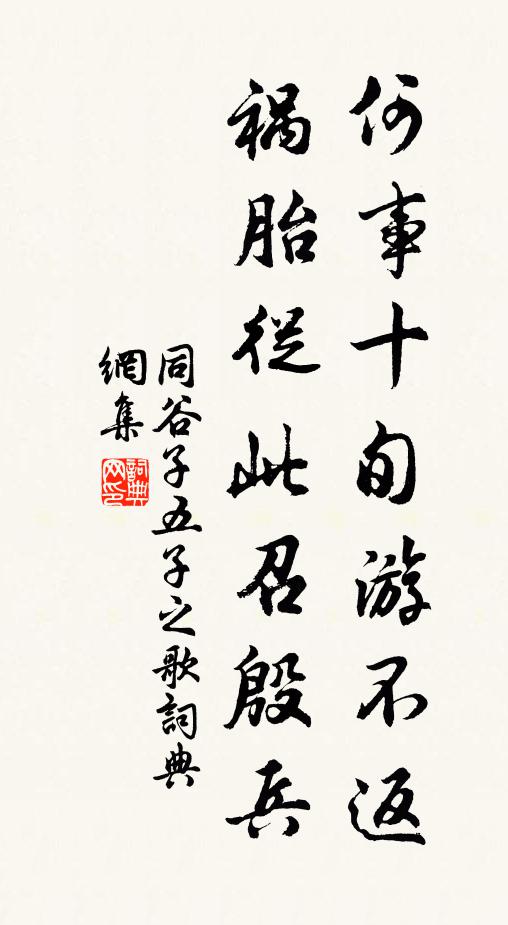 何事十旬游不返
禍胎從此召殷兵
同谷子五子之歌詞典
網集
詞典网印